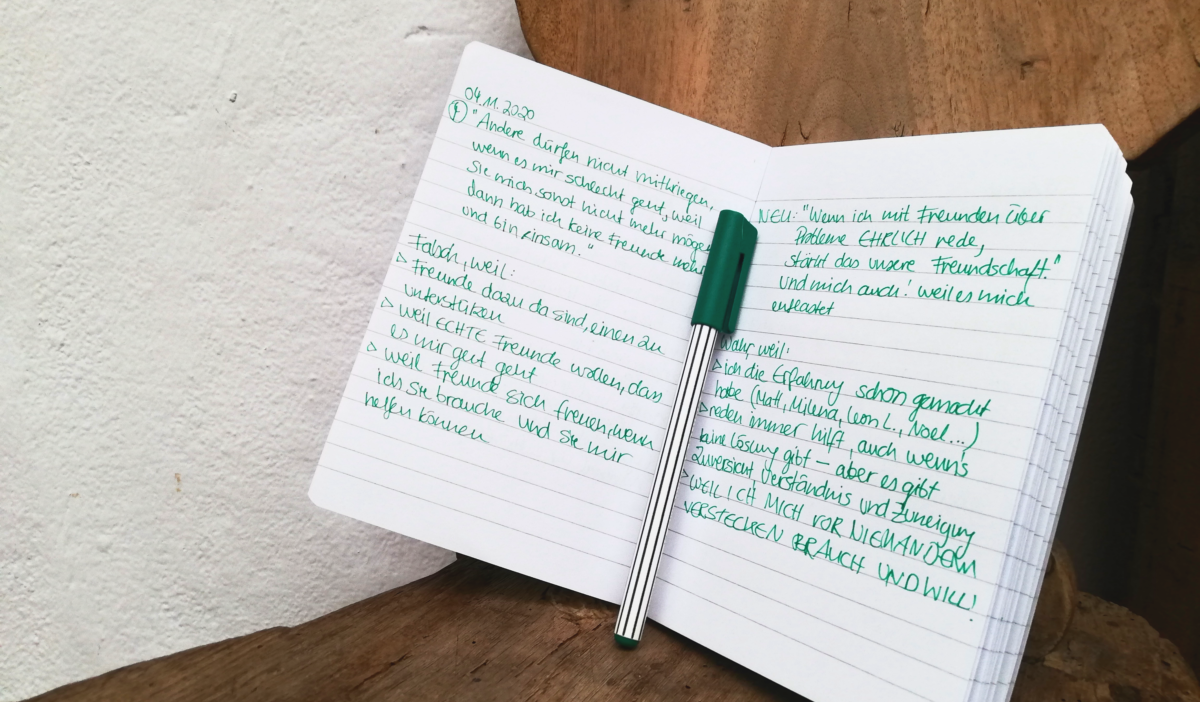 04.11.2020
① "Andere dürfen nicht mitkriegen,
wenn es mir schlecht geht, weil
sie mich sonst nicht mehr mögen
dann hab ich keine Freunde mehr
und bin einsam."
Falsch, weil:
▷ Freunde dazu da sind, einen zu
unterstützen
▷ weil ECHTE Freunde wollen, dass
es mir gut geht
▷ weil Freunde sich freuen, wenn
ich sie brauche und sie mir
helfen können
NEU: "Wenn ich mit Freunden über
Probleme EHRLICH rede,
stärkt das unsere Freundschaft."
und mich auch! weil es mich
entlastet
Wahr, weil:
▷ ich die Erfahrung schon gemacht
habe (Matt, Milena, Leon L., Noel...)
▷ reden immer hilft, auch wenn's
keine Lösung gibt – aber es gibt
Zuversicht, Verständnis und Zuneigung
▷ WEIL ICH MICH VOR NIEMANDEM
VERSTECKEN BRAUCH UND WILL!